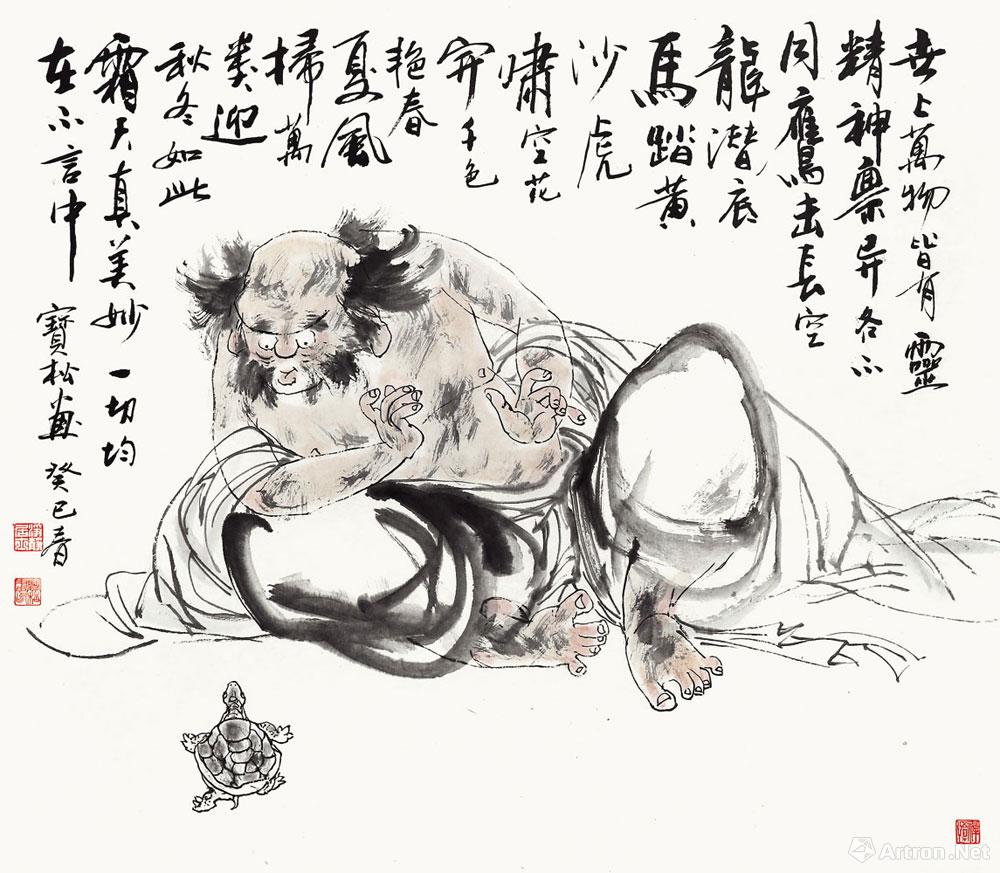 世上萬物皆有靈
精神稟异各不
同鷹击长空
龍潜底
馬踏黄
沙虎
嘯空花
开千色
艳春
夏風
掃萬
类迎
秋冬如此
霜天真美妙一切均
在不言中
寶松画癸巳春
Artron.Net